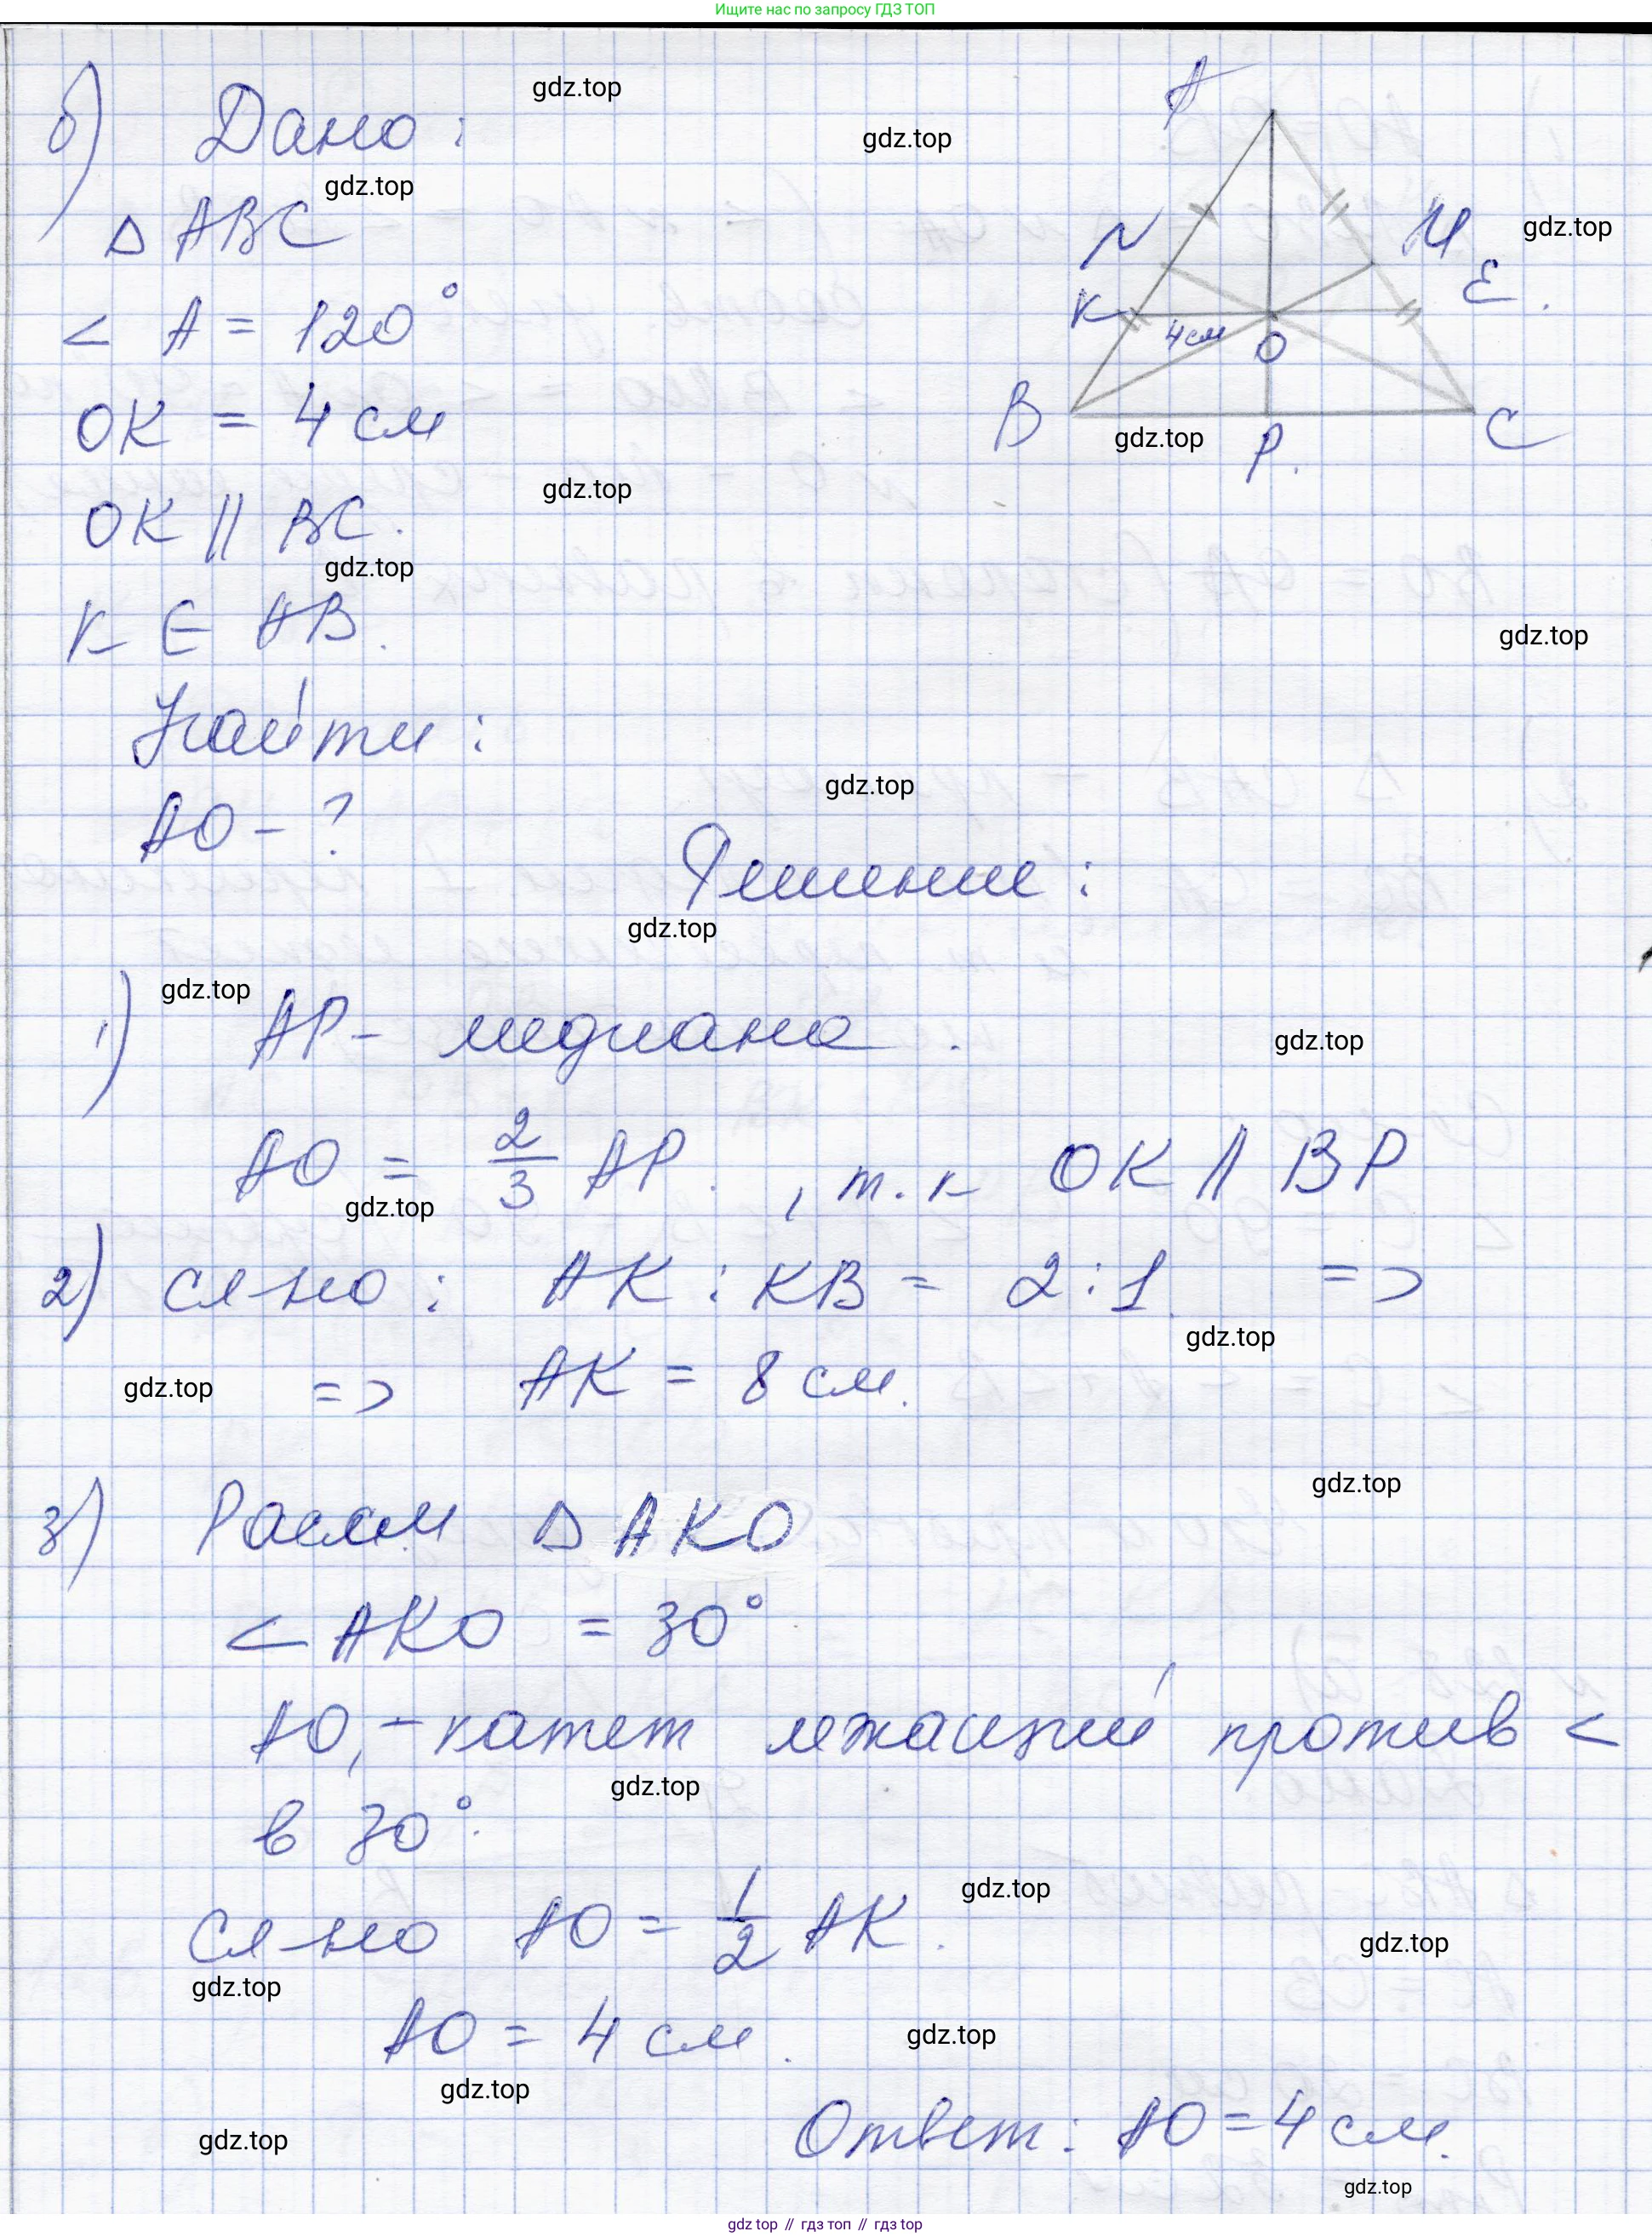 Ищите нас по запросу ГДЗ ТОП
б) Дано:
gdz.top
gdz.top
gdz.top
A
N
M
E.
K
4 см
O
B
P.
C
gdz.top
gdz.top
Δ ABC
< A = 120°
OK = 4 см
gdz.top
OK || BC.
gdz.top
K ∈ AB.
gdz.top
Найти:
gdz.top
AO - ?
Решение:
gdz.top
gdz.top
1) AP - медиана.
gdz.top
AO = 2/3 AP. , т.к OK || BP
gdz.top
2) сл-но: AK : KB = 2:1. =>
gdz.top
gdz.top
=> AK = 8 см.
gdz.top
3) Рассм Δ AKO
< AKO = 30°
AO, - катет лжащий против <
gdz.top
в 30°.
gdz.top
Сл-но AO = 1/2 AK.
gdz.top
gdz.top
AO = 4 см.
gdz.top
gdz.top
Ответ: AO = 4 см.
gdz.top
gdz.top
gdz top // гдз топ // гдз top